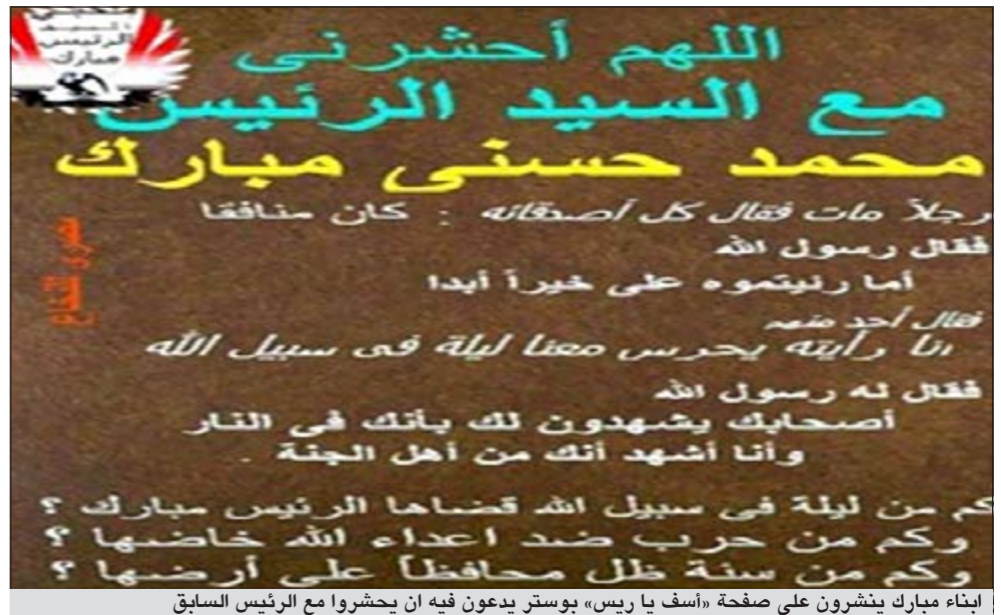 السيد
الرئيس
مبارك
اللهم أحشرنى
مع السيد الرئيس
محمد حسنى مبارك
رجلاً مات فقال كل أصدقائه : كان منافقا
فقال رسول الله
أما رئيتموه على خيراً أبدا
فقال أحد منهم
انا رأيته يحرس معنا ليلة فى سبيل الله
فقال له رسول الله
أصحابك يشهدون لك بأنك فى النار
وأنا أشهد أنك من أهل الجنة .
كم من ليلة فى سبيل الله قضاها الرئيس مبارك ؟
وكم من حرب ضد اعداء الله خاضها ؟
وكم من سنة ظل محافظاً على أرضها ؟
ابناء مبارك ينشرون على صفحة «أسف يا ريس» بوستر يدعون فيه ان يحشروا مع الرئيس السابق